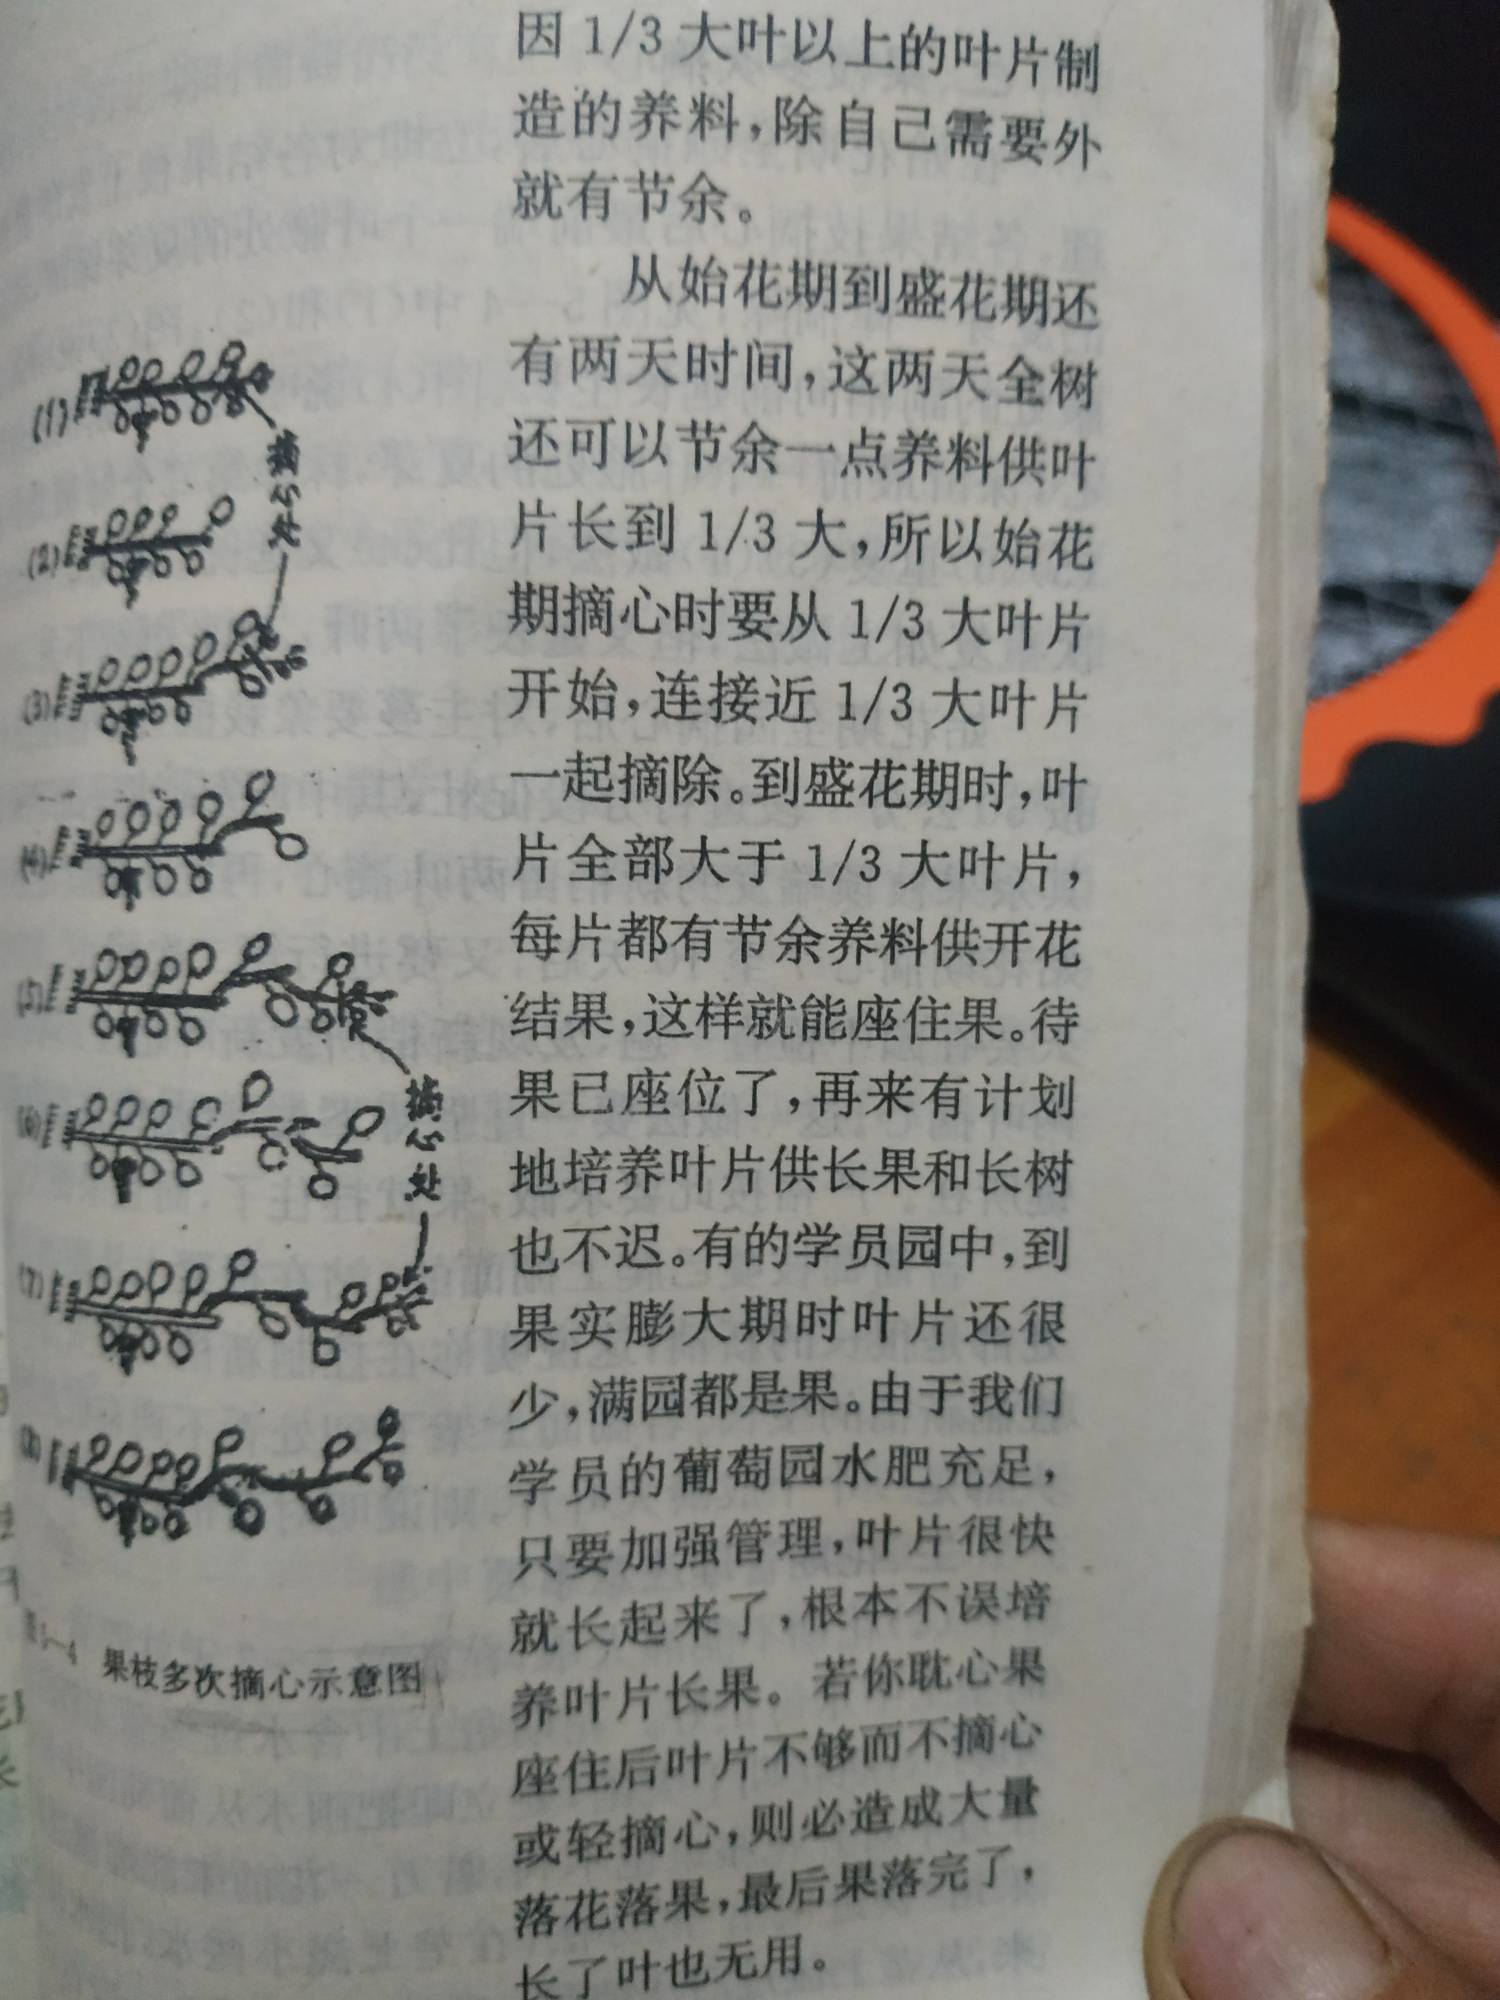 因1/3大叶以上的叶片制
造的养料,除自己需要外
就有节余。
从始花期到盛花期还
有两天时间,这两天全树
还可以节余一点养料供叶
片长到1/3大,所以始花
期摘心时要从1/3大叶片
开始,连接近1/3大叶片
一起摘除。到盛花期时,叶
片全部大于1/3大叶片,
每片都有节余养料供开花
结果,这样就能座住果。待
果已座位了,再来有计划
地培养叶片供长果和长树
也不迟。有的学员园中,到
果实膨大期时叶片还很
少,满园都是果。由于我们
学员的葡萄园水肥充足,
只要加强管理,叶片很快
就长起来了,根本不误培
养叶片长果。若你耽心果
座住后叶片不够而不摘心
或轻摘心,则必造成大量
落花落果,最后果落完了,
长了叶也无用。
(1)
摘心处
(2)
(3)
(4)
(5)
摘心处
(6)
(7)
果枝多次摘心示意图